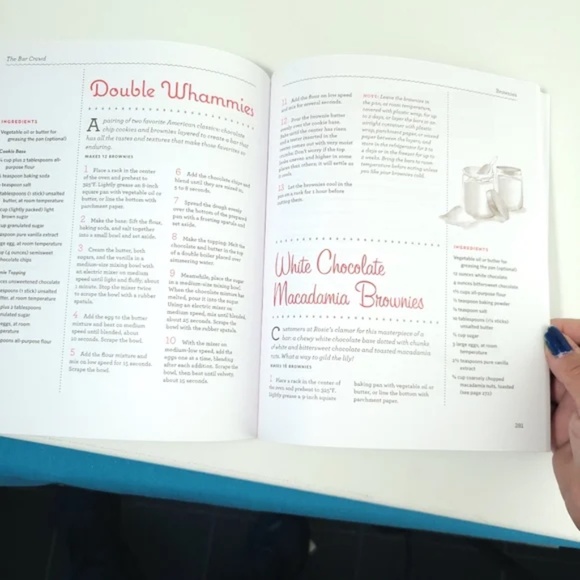 The Bar Crowd
Double Whammies
A pairing of two favorite American classics: chocolate
chip cookies and brownies layered to create a bar that
has all the tastes and textures that make those favorites so
enduring.
MAKES 12 BROWNIES
INGREDIENTS
Vegetable oil or butter for
greasing the pan (optional)
Cookie Base
cup plus 2 tablespoons all-
purpose flour
teaspoon baking soda
teaspoon salt
tablespoons (½ stick) unsalted
butter, at room temperature
cup (lightly packed) light
brown sugar
cup granulated sugar
teaspoon pure vanilla extract
egg, at room temperature
cup (4 ounces) semisweet
chocolate chips
Brownie Topping
ounces unsweetened chocolate
tablespoons (1 stick) unsalted
butter, at room temperature
cups plus 2 tablespoons
sugar
teaspoon pure vanilla extract
eggs, at room
temperature
tablespoons all-purpose flour
1 Place a rack in the center
of the oven and preheat to
325°F. Lightly grease an 8-inch
square pan with vegetable oil or
butter, or line the bottom with
parchment paper.
2 Make the base: Sift the flour,
baking soda, and salt together
into a small bowl and set aside.
3 Cream the butter, both
sugars, and the vanilla in a
medium-size mixing bowl with
an electric mixer on medium
speed until light and fluffy, about
1 minute. Stop the mixer twice
to scrape the bowl with a rubber
spatula.
4 Add the egg to the butter
mixture and beat on medium
speed until blended, about
10 seconds. Scrape the bowl.
5 Add the flour mixture and
mix on low speed for 15 seconds.
Scrape the bowl.
6 Add the chocolate chips and
blend until they are mixed in,
5 to 8 seconds.
7 Spread the dough evenly
over the bottom of the prepared
pan with a frosting spatula and
set aside.
8 Make the topping: Melt the
chocolate and butter in the top
of a double boiler placed over
simmering water.
9 Meanwhile, place the sugar
in a medium-size mixing bowl.
When the chocolate mixture has
melted, pour it into the sugar.
Using an electric mixer on
medium speed, mix until blended,
about 25 seconds. Scrape the bowl
with the rubber spatula.
10 With the mixer on
medium-low speed, add the
eggs one at a time, blending
after each addition. Scrape the
bowl, then beat until velvety,
about 15 seconds.
Brownies
11 Add the flour on low speed
and mix for several seconds.
12 Pour the brownie batter
evenly over the cookie base.
Bake until the center has risen
and a tester inserted in the
center comes out with very moist
crumbs. Don't worry if the top
looks uneven and higher in some
places than others; it will settle as
it cools.
13 Let the brownies cool in the
pan on a rack for 1 hour before
cutting them.
NOTE: Leave the brownies in
the pan, at room temperature,
covered with plastic wrap, for up
to 2 days, or layer the bars in an
airtight container with plastic
wrap, parchment paper, or waxed
paper between the layers, and
store in the refrigerator for 2 to
3 days or in the freezer for up to
2 weeks. Bring the bars to room
temperature before eating unless
you like your brownies cold.
White Chocolate
Macadamia Brownies
Customers at Rosie's clamor for this masterpiece of a
bar: a chewy white chocolate base dotted with chunks
of white and bittersweet chocolate and toasted macadamia
nuts. What a way to gild the lily!
MAKES 12 BROWNIES
1 Place a rack in the center of
the oven and preheat to 325°F.
Lightly grease a 9-inch square
baking pan with vegetable oil or
butter, or line the bottom with
parchment paper.
INGREDIENTS
Vegetable oil or butter for
greasing the pan (optional)
ounces white chocolate
ounces bittersweet chocolate
cups all-purpose flour
teaspoon baking powder
teaspoon salt
tablespoons (½ stick)
unsalted butter
cup sugar
large eggs, at room
temperature
teaspoons pure vanilla
extract
cup coarsely chopped
macadamia nuts, toasted